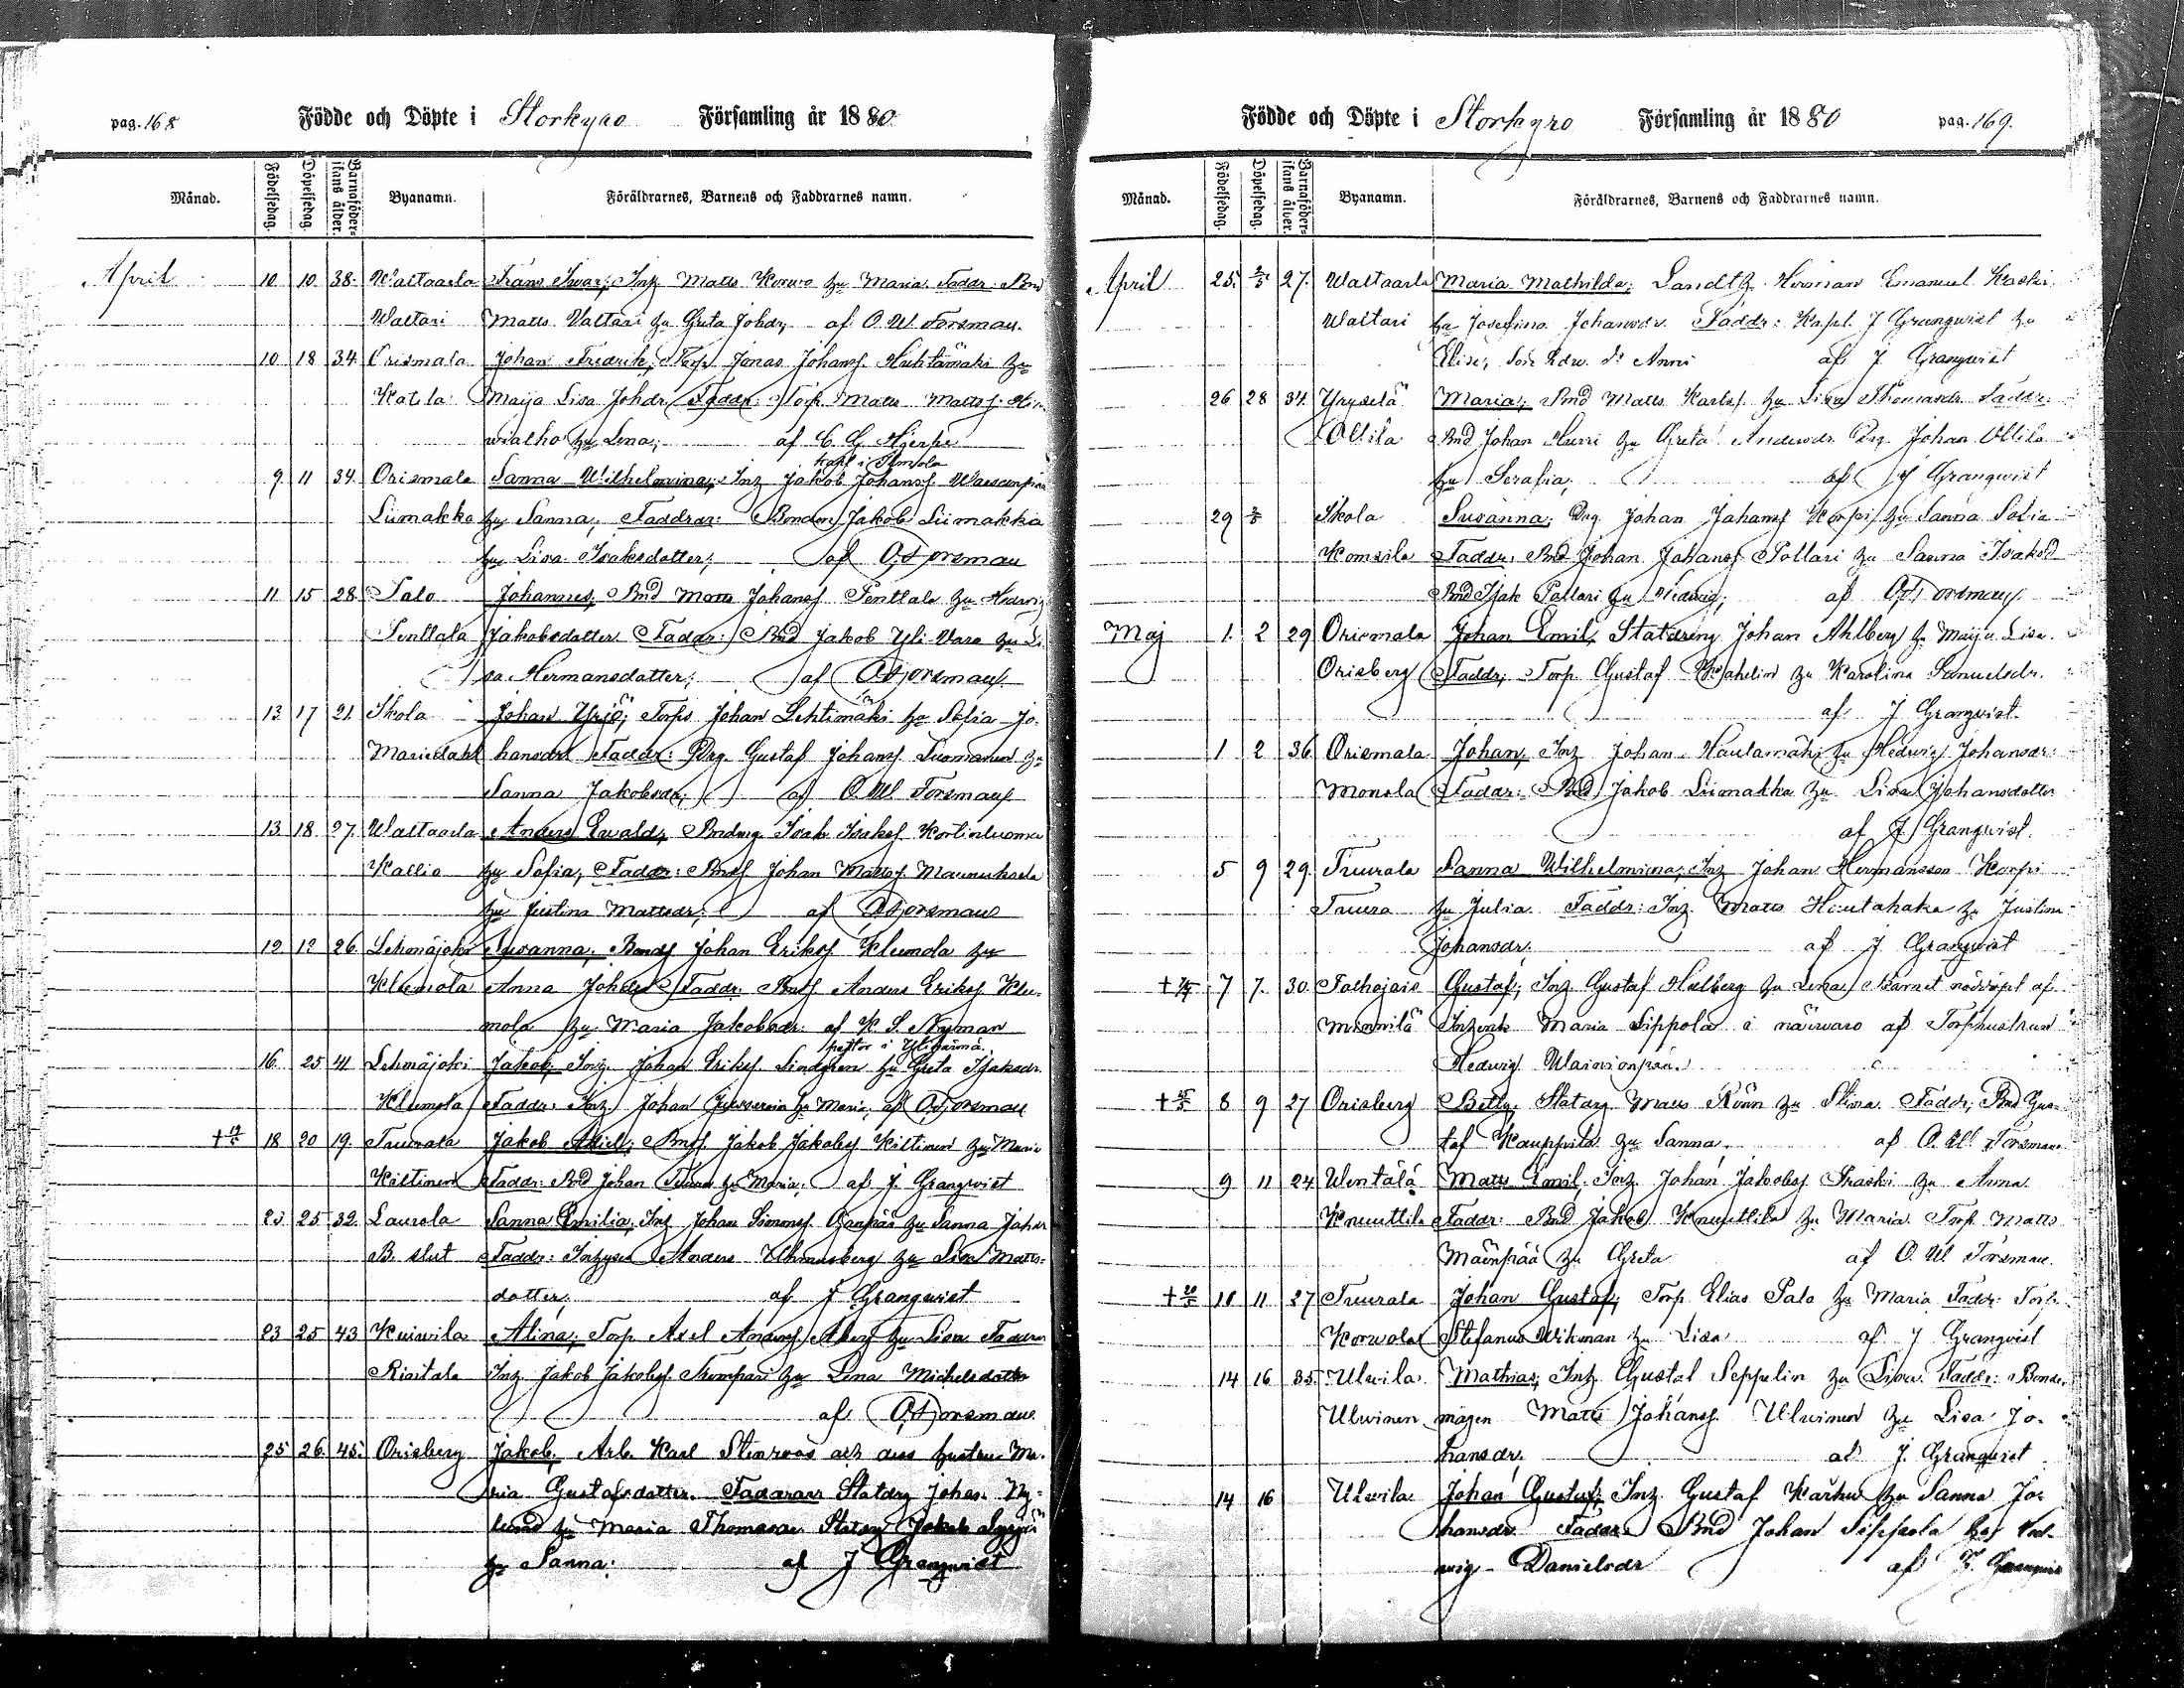 pag. 168 Födde och Döpte i Storkyro Församling år 1880
Månad. Födelsedag. Döpelsedag. Barnaföderskans ålder. Byanamn. Föräldrarnes, Barnens och Faddrarnes namn.
April 10 10 38 Waltaarla Frans Iwar; Inh Matts Korwo hu Maria Faddr: Bnd
Waltari Matts Valtari hu Greta Johdr; af O. W. Forsman.
10 18 34 Orismala Johan Fredrik; Torp Jonas Johansf. Huhtamäki hu
Katila Maija Lisa Johdr. Faddr: Torp Matts Mattsf.
wialho hu Lena; af C. G. Hjerpe
kapl i
9 11 34 Orismala Sanna Wilhelmina; Inh Jakob Johansf
Liimakka hu Sanna; Faddrar: Bonden Jakob Liimakka
hu Lisa Isaksdotter; af O Forsman
11 15 28 Palo Johannes; Bnd Matts Johansf Penttala hu Hedvig
Penttala Jakobsdotter Faddr: Bnd Jakob Yli Wara hu Li
sa Hermansdotter; af O Forsman
13 17 21 Skola Johan Yrjö; Torp Johan Lehtimäki hu Sofia Jo-
Mariedahl hansdr Faddr: Drg Gustaf Johansf Luomanen hu
Sanna Jakobsdr; af O. W. Forsman
13 18 27 Waltaarla Anders Ewald; Bndmg Isak Isaksf Kortinluoma
Kallio hu Sofia; Faddr: Bndf Johan Mattsf Maunuksela
hu Justina Mattsdr; af O Forsman
12 12 26 Lehmäjoki Susanna; Bondf Johan Eriksf Klemola hu
Klemola Anna Johdr Faddr. Bndf Anders Eriksf Kle-
mola hu Maria Jakobsdr. af K. S. Nyman
pastor i Ylistarmä.
16 25 41 Lehmäjoki Jakob; Inh. Johan Eriksf. Lindgren hu Greta Isaksdr.
Klemola Faddr. Inh Johan hu Maria; af O Forsman
+ 18 20 19 Tuurala Jakob; Bndf. Jakob Jakobsf Kiltinen hu Maria
Kiltinen Faddr. Bnd Johan Tuura hu Maria; af J. Granqwist
23 25 32 Laurola Sanna Emilia; Inh Johan Simonsf hu Sanna Johdr
B. slut Faddr: Inhyses Anders hu Lisa Matts-
dotter; af J Granqwist
23 25 43 Kuiwila Alina; Torp Axel Andersf. Åberg hu Lisa Faddrar
Ristala Inh Jakob Jakobsf Kempas hu Lena Michelsdotter
af O Forsman
25 26 45 Orisberg Jakob; Arb. Karl Stenroos och dess hustru Ma-
ria Gustafsdotter. Faddrar Statdrg Johan Ny-
lund hu Maria Thomasdr Statdrg Jakob
hu Sanna; af J Granqwist
Födde och Döpte i Storkyro Församling år 1880 pag. 169.
Månad. Födelsedag. Döpelsedag. Barnaföderskans ålder. Byanamn. Föräldrarnes, Barnens och Faddrarnes namn.
April 25 2/5 27 Waltaarla Maria Mathilda; Landth. Herman Emanuel Kaski
Waltari hu Josefina Johansdr. Faddr: Kapl. J Granqwist hu
Elise; af J Granqwist
26 28 34 Yryselä Maria; Bnd Matts Karlsf. hu Lisa Thomasdr Faddr:
Ollila Bnd Johan Hurri hu Greta Andersdr Drg Johan Ollila
hu Serafia; af J Granqwist
29 2/5 Skola Susanna; Drg Johan Johansf Korpi hu Sanna Sofia
Komsila Faddr. Bnd Johan Johansf Pollari hu Sanna Isaksd
Bnd Isak Pollari hu Hedwig; af O Forsman
Maj 1 2 29 Orismala Johan Emil; Statdreng Johan Ahlberg hu Maija Lisa.
Orisberg Faddr; Torp Gustaf Wahelin hu Karolina Samuelsdr.
af J Granqvist.
1 2 36 Orismala Johan; Inh Johan Hautamäki hu Hedwig Johansdr:
Monola Faddr: Bnd Jakob Liimakka hu Lisa Johansdotter
af J Granqwist.
5 9 29 Tuurala Sanna Wilhelmina; Inh Johan Hermansson Korpi
Tuura hu Julia Faddr: Inh. Matts Hautahaka hu Justina
Johansdr; af J Granqwist
+ 7 7 30 Palhojais Gustaf; Inh Gustaf Hallberg hu Lena; Barnet nöddöpt af
Minnilä Inhenk Maria Sippola i närwaro af Torphustrun
Hedwig Wainionpää.
+ 8 9 27 Orisberg Betty; Statdrg Matts Rönn hu Stina. Faddr; Bnd Gus-
taf Kauppila hu Sanna. af O. W. Forsman
9 11 24 Wentälä Matts Emil; Inh. Johan Jakobsf Kraski hu Anna
Knuuttila Faddr: Bnd Jakob Knuuttila hu Maria Torp Matts
Mäenpää hu Greta af O. W. Forsman.
+ 20/5 10 11 27 Tuurala Johan Gustaf; Torp Elias Palo hu Maria Faddr: Torp
Korwola Stefanus Wikman hu Lisa af J Granqvist
14 16 35 Ulwila Mathias; Inh Gustaf Seppelin hu Lisa Faddr: Bonde-
Ulwinen mågen Matts Johansf. Ulwinen hu Lisa Jo-
hansdr; af J. Granqvist
14 16 Ulwila Johan Gustaf; Inh. Gustaf Karhu hu Sanna Jo-
hansdr Faddr Bnd Johan Sippola hu Hed-
wig Danielsdr af J. Granqwist